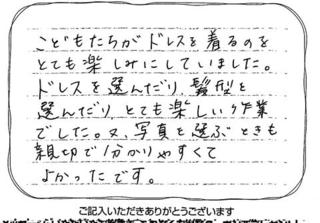 こどもたちがドレスを着るのを
とても楽しみにしていました。
ドレスを選んだり、髪型を
選んだり とても楽しい作業
でした。又、写真を選ぶときも
親切で分かりやすくて
よかったです。
ご記入いただきありがとうございます